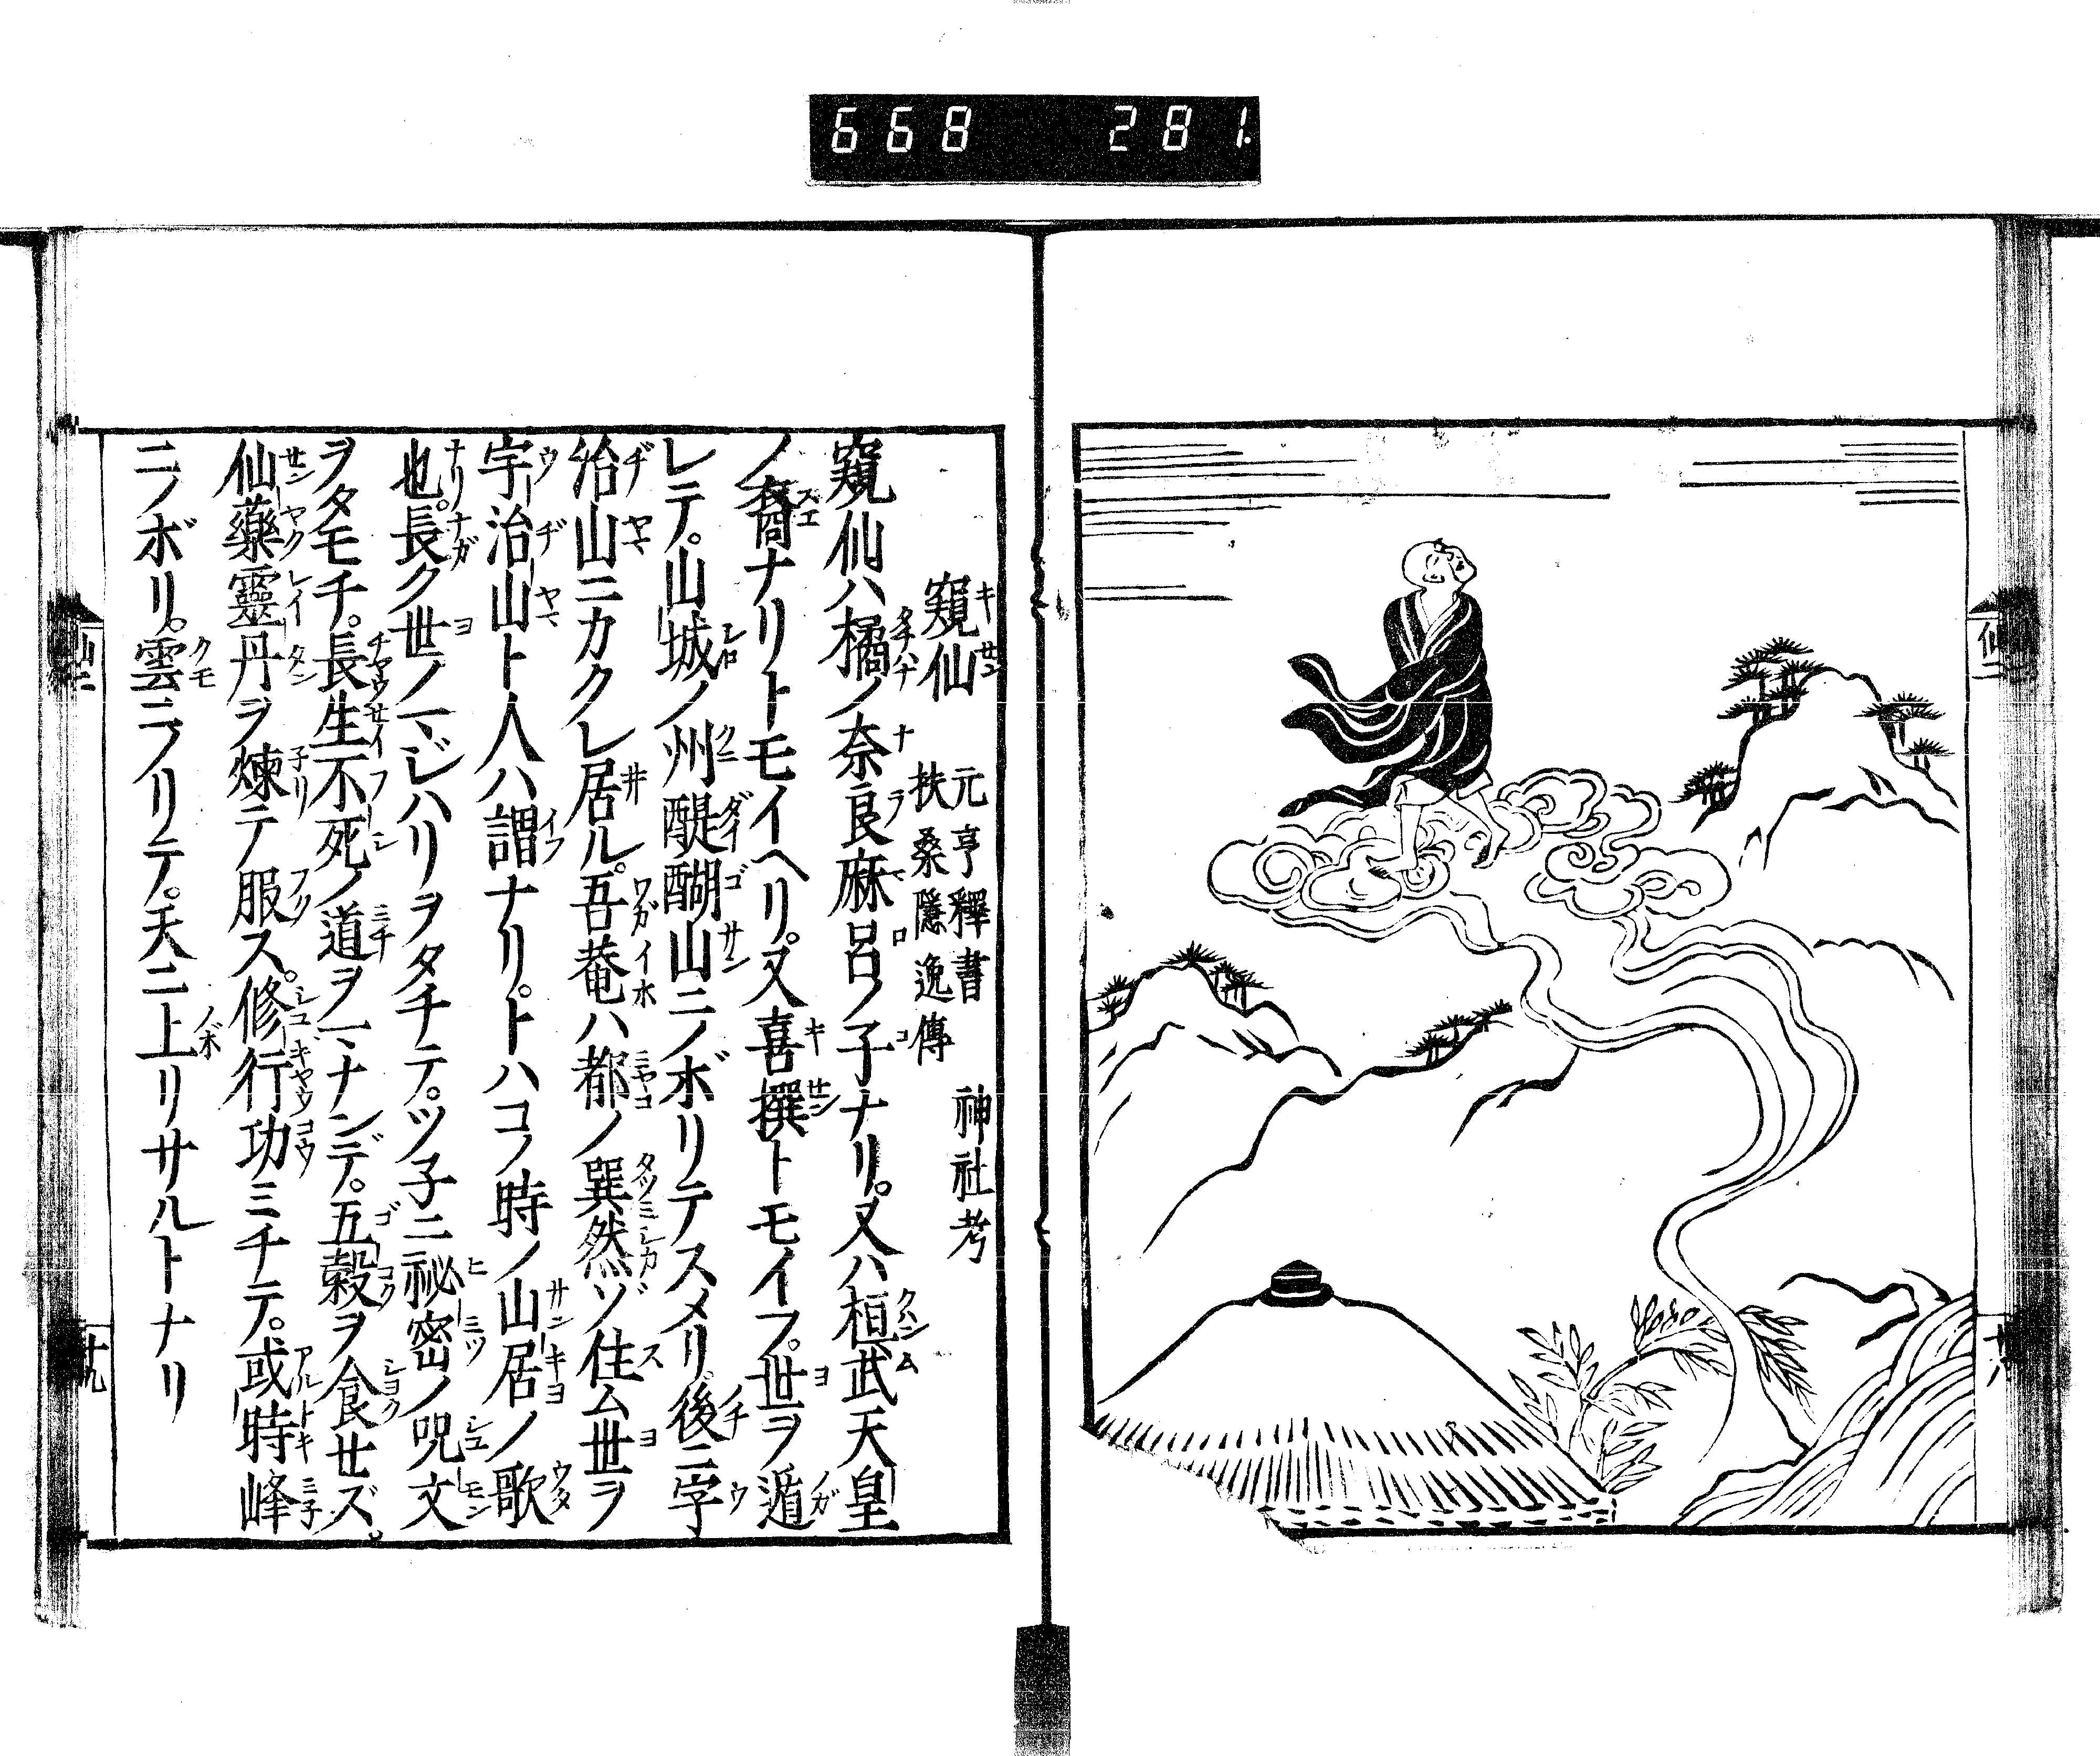 668 281
窺仙 元亨釋書 神社考
扶桑隱逸傳
窺仙ハ橘ノ奈良麻呂ノ子ナリ。又ハ桓武天皇
ノ裔ナリトモイヘリ。又喜撰トモイフ。世ヲ遁
レテ。山城ノ州醍醐山ニノボリテスメリ。後ニ宇
治山ニカクレ居ル。吾菴ハ都ノ巽然ゾ住ム世ヲ
宇治山ト人ハ謂ナリ。トハコノ時ノ山居ノ歌
也。長ク世ノマジハリヲタチテ。ツ子ニ祕密ノ呪文
ヲタモチ。長生不死ノ道ヲマナンデ。五穀ヲ食セズ。
仙藥靈丹ヲ煉テ服ス。修行功ミチテ。或時峰
ニノボリ。雲ニノリテ。天ニ上リサルトナリ